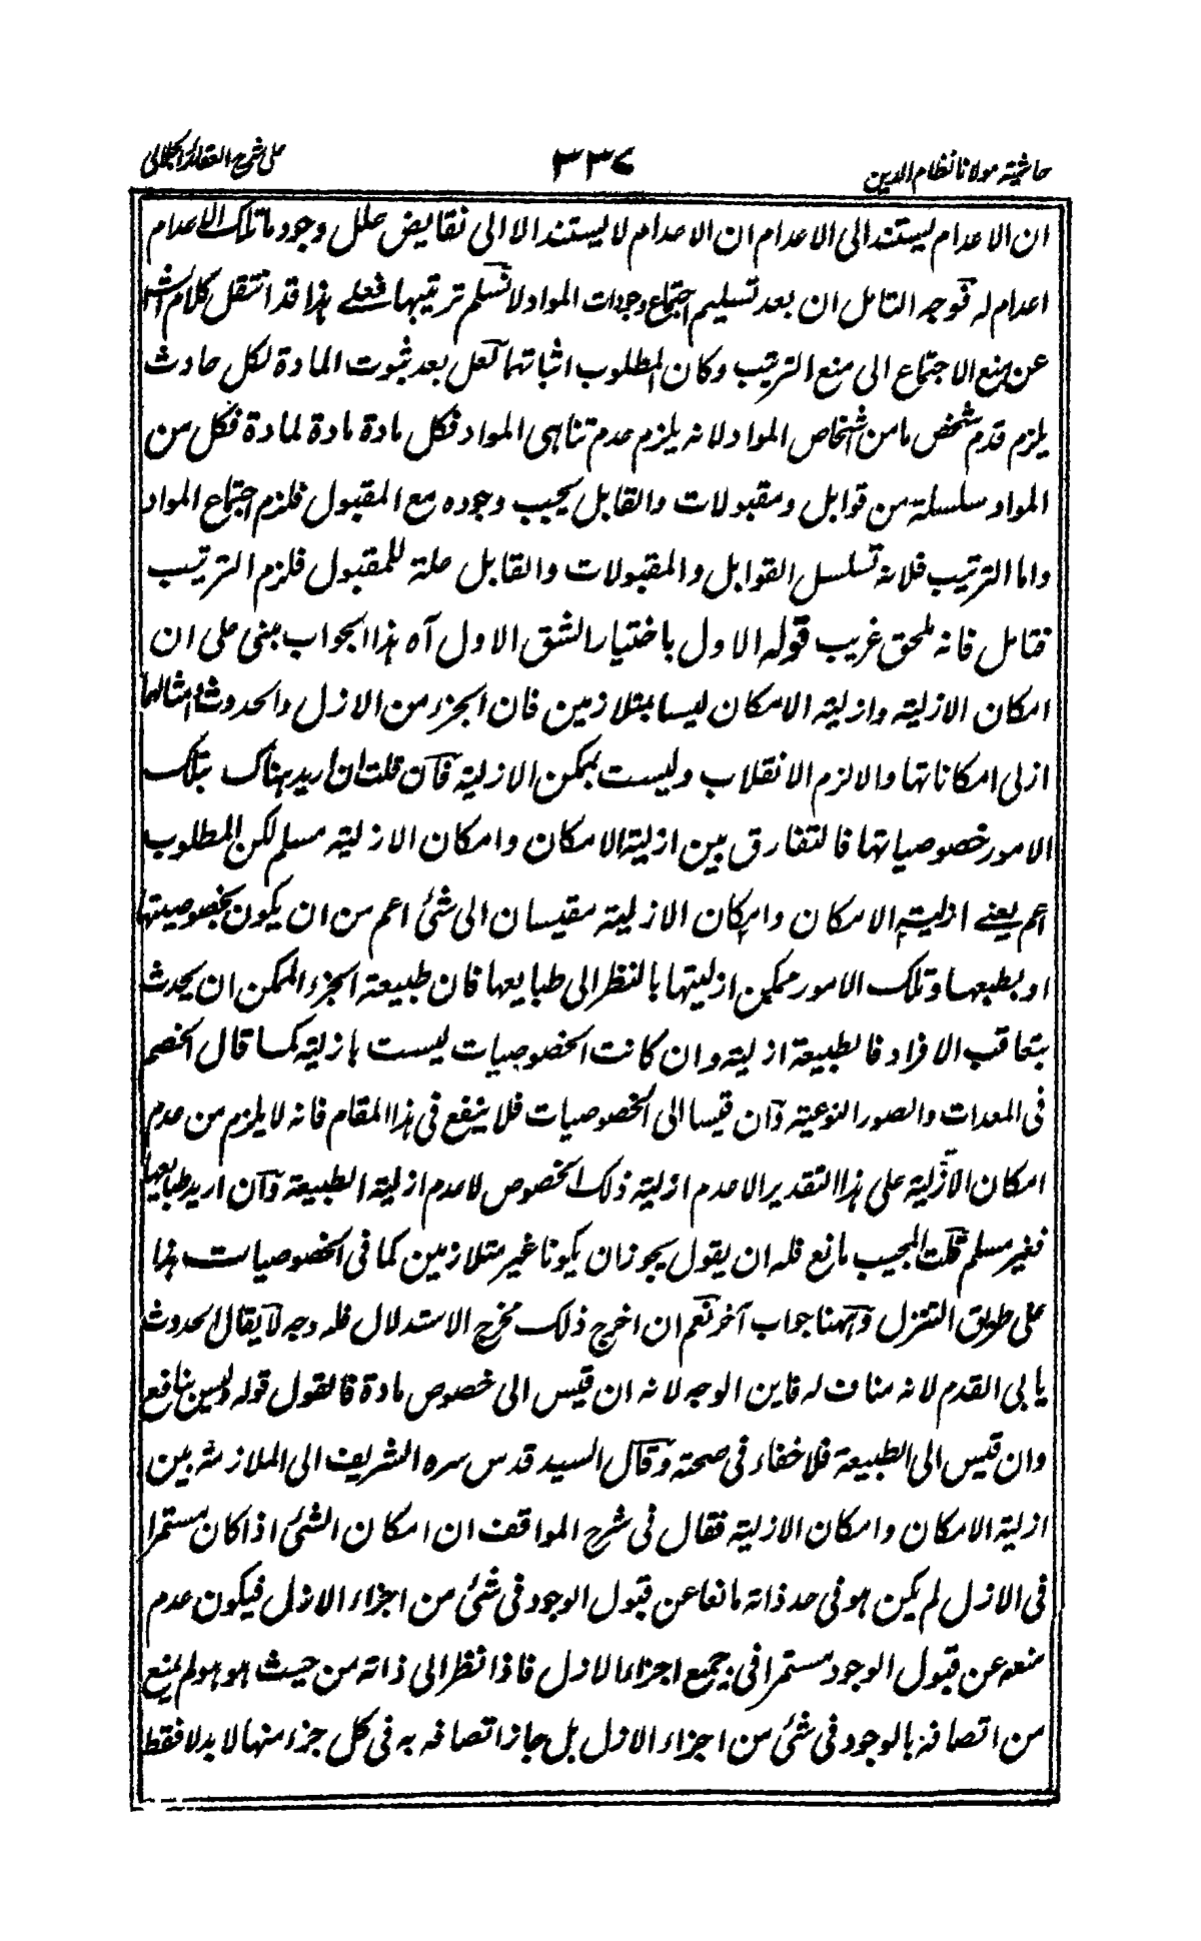 حاشیة مولانا نظام الدین ٣٣٤ علی شرح العقائد الجلالی
ان الاعدام یستند الی الاعدام ان الاعدام لا یستند الا الی نقایض علل وجود ما تلک الاعدام
اعدام له فوجه التامل ان بعد تسلیم اجتماع وجودات المواد لا نسلم ترتیبها فعلے هذا قد انتقل کلام
عن منع الاجتماع الی منع الترتیب وکان المطلوب اثباتها لعل بعد ثبوت المادة لکل حادث
یلزم قدم شخص ما من اشخاص المواد لانه یلزم عدم تناهی المواد فکل مادة مادة لمادة فکل من
المواد سلسلة من قوابل ومقبولات والقابل یجیب وجوده مع المقبول فلزم اجتماع المواد
واما الترتیب فلانه تسلسل القوابل والمقبولات والقابل علة للمقبول فلزم الترتیب
فتامل فانه ملحق غریب قوله الاول باختیار الشق الاول آه هذا الجواب مبنی علی ان
امکان الازلیة وازلیة الامکان لیسا بمتلازمین فان الجزء من الازل والحدوث امثالها
ازلی امکاناتها والا لزم الانقلاب ولیست بممکن الازلیة فان قلت ان ارید بهناک بتلک
الامور خصوصیاتها فالتفارق بین ازلیة الامکان وامکان الازلیة مسلم لکن المطلوب
اعم یعنے ازلیة الامکان وامکان الازلیة مقیسان الی شئ اعم من ان یکون بخصوصیتها
او بطبعها وتلک الامور ممکن ازلیتها بالنظر الی طبایعها فان طبیعة الجزء الممکن ان یحدث
بتعاقب الافراد فالطبیعة ازلیة وان کانت الخصوصیات لیست بازلیة کما قال الخصم
فی المعدات والصور النوعیة وان قیسا الی الخصوصیات فلا ینفع فی هذا المقام فانه لا یلزم من عدم
امکان الازلیة علی هذا التقدیر الا عدم ازلیة ذلک الخصوص لا عدم ازلیة الطبیعة وان ارید طبایعها
فغیر مسلم قلت المجیب مانع فله ان یقول یجوز ان یکونا غیر متلازمین کما فی الخصوصیات هذا
علی طریق التنزل وههنا جواب آخر نعم ان اخرج ذلک مخرج الاستدلال فله وجه لا یقال الحدوث
یابی القدم لانه مناف له فاین الوجه لانه ان قیس الی خصوص مادة فالقول قوله ولیس بنافع
وان قیس الی الطبیعة فلا خفاء فی صحته وقال السید قدس سره الشریف الی الملازمة بین
ازلیة الامکان وامکان الازلیة فقال فی شرح المواقف ان امکان الشئ اذا کان مستمرا
فی الازل لم یکن هو فی حد ذاته مانعا عن قبول الوجود فی شئ من اجزاء الازل فیکون عدم
منعه عن قبول الوجود مستمرا فی جمیع اجزاء الازل فاذا نظر الی ذاته من حیث هو هو لم یمنع
من اتصافه بالوجود فی شئ من اجزاء الازل بل جاز اتصافه به فی کل جزء منها لا بدلا فقط